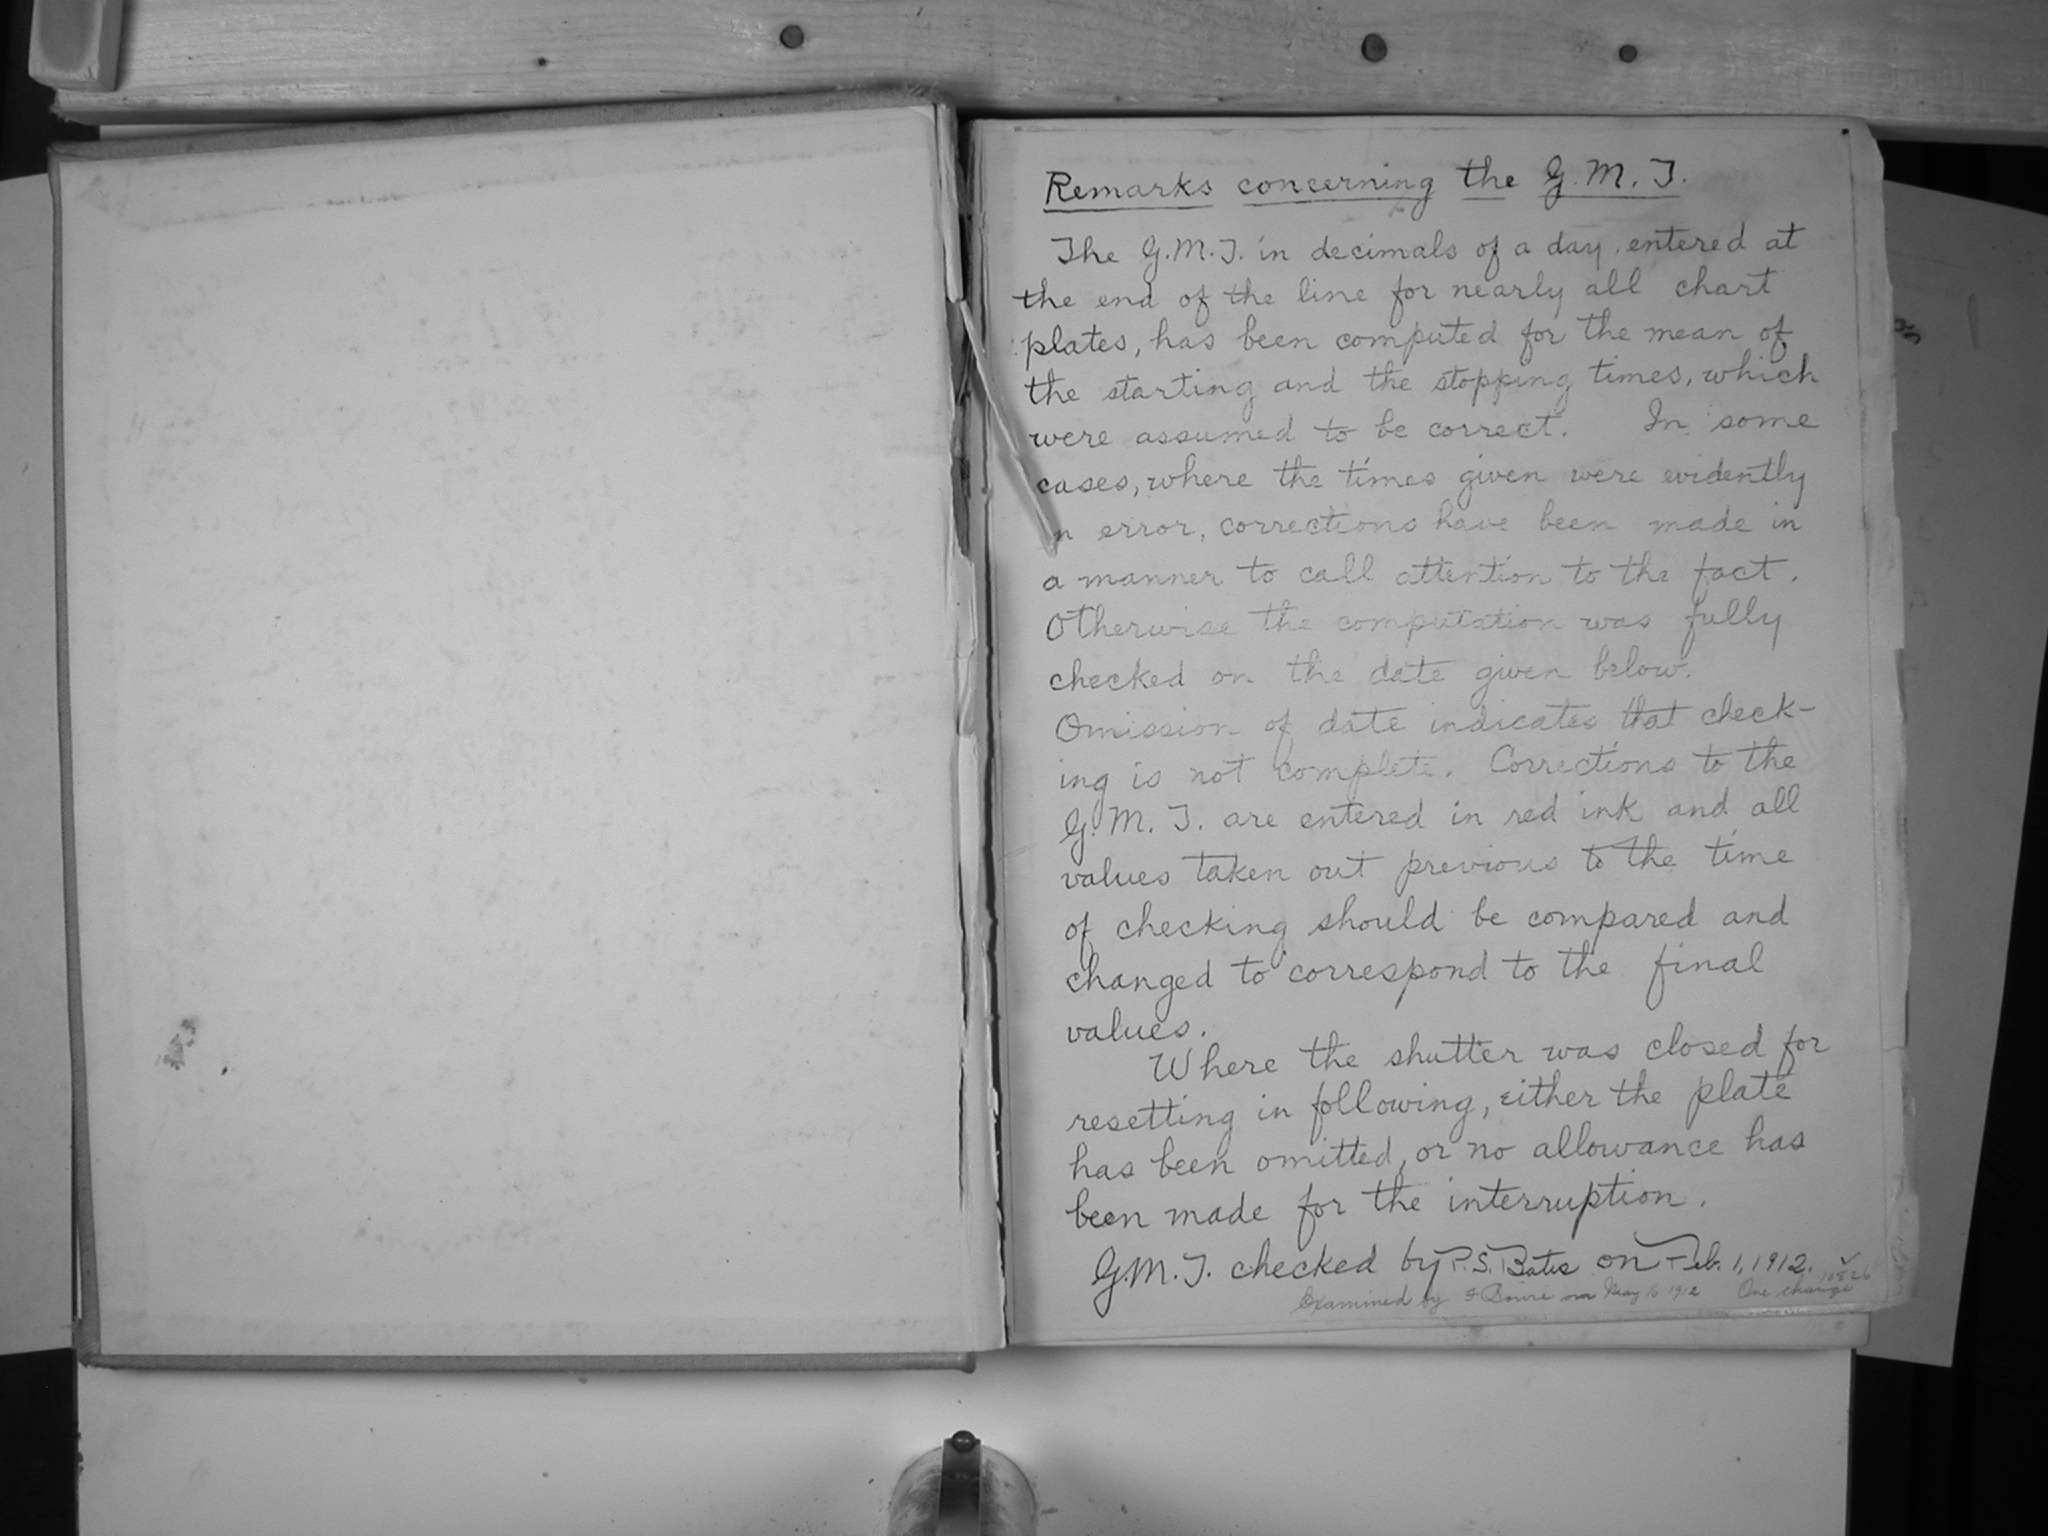 Remarks concerning the G.M.T.
The G.M.T. in decimals of a day, entered at
the end of the line for nearly all chart
plates, has been computed for the mean of
the starting and the stopping times, which
were assumed to be correct. In some
cases, where the times given were evidently
n error, corrections have been made in
a manner to call attention to the fact.
Otherwise the computation was fully
checked on the date given below.
Omission of date indicates that check-
ing is not complete. Corrections to the
G.M.T. are entered in red ink and all
values taken out previous to the time
of checking should be compared and
changed to correspond to the final
values.
Where the shutter was closed for
resetting in following, either the plate
has been omitted, or no allowance has
been made for the interruption.
G.M.T. checked by P.S. Bates on Feb. 1, 1912.
Examined by on May 1912 One change